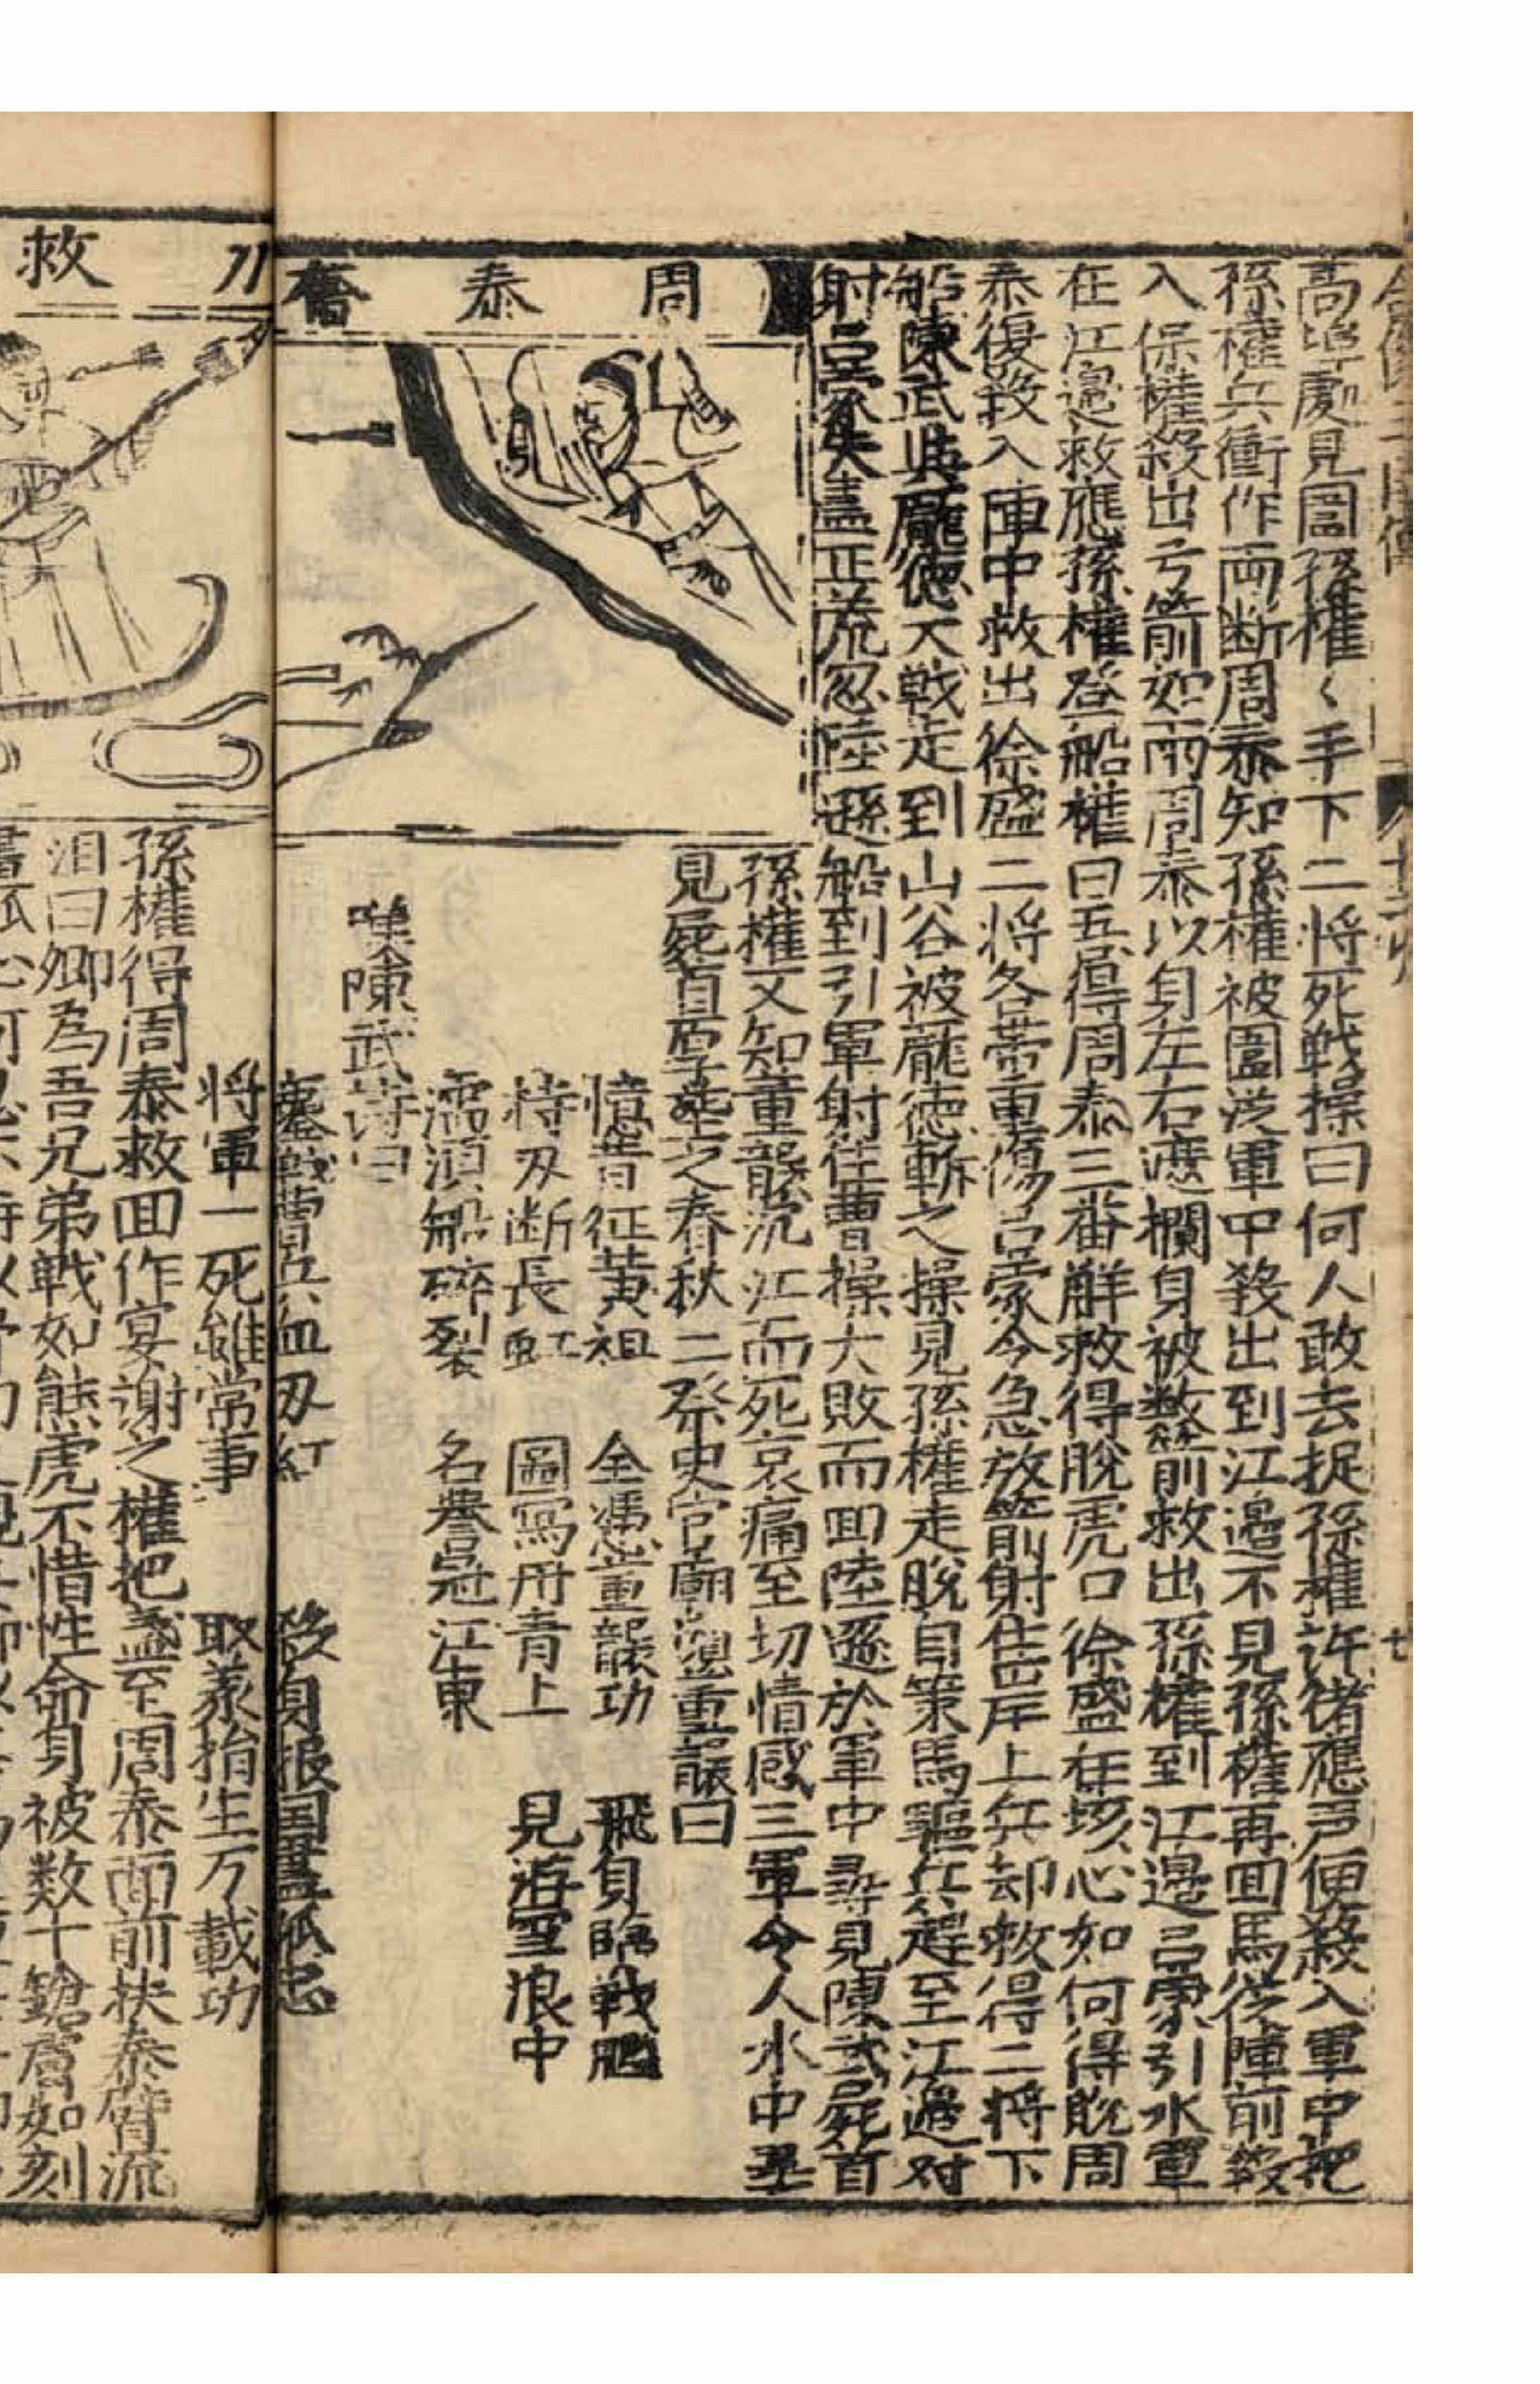 高阜處見圍孫權〻手下二将死戦操曰何人敢去捉孫權許褚應声便殺入軍中把
孫權兵衝作両断周泰知孫權被圍从軍中殺出到江邉不見孫權再囬馬從陣前殺
入保權殺出弓箭如雨周泰以身左右遮欄身被数箭救出孫權到江邉吕蒙引水軍
在江邉救應孫權登船權曰吾得周泰三番觧救得脫虎口徐盛在垓心如何得脫周
泰復殺入陣中救出徐盛二将各帯重傷吕蒙令急放箭射住岸上兵却救得二将下
船陳武與龐徳大戦走到山谷被龐徳斬之操見孫權走脫自策馬驅兵趕至江邉对
射吕蒙矢盡正荒忽陸遜船到引軍射徃曹操大敗而囬陸遜於軍中尋見陳武屍首
孫權又知董襲沉江而死哀痛至切情感三軍令人水中尋
見屍首厚塟之春秋二祭史官廟讃董襲曰
憶昔征黄祖 全憑董襲功 飛身臨戦艦
持刃断長虹 圖寫丹青上 見游雪浪中
濡湏船碎裂 名譽冠江東
嘆陳武詩曰
鏖戦曹兵血刃紅 殺身报国盡孤忠
周泰奮
刀救
将軍一死雖常事 取義捨生万載功
孫權得周泰救囬作宴謝之權把盞至周泰面前扶泰臂流
泪曰卿為吾兄弟戦如熊虎不惜性命身被数十鎗膚如刻